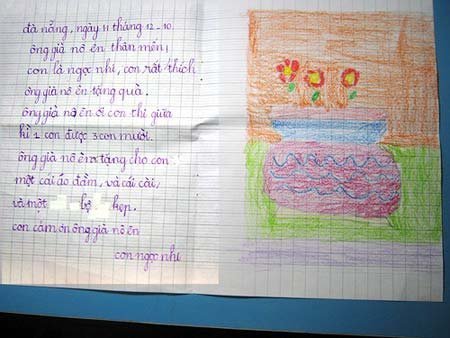 đà nẵng, ngày 11 tháng 12-10.
ông già nô ên thân mến,
con là ngọc nhi, con rất thích
ông già nô ên tặng quà.
ông già nô ên ơi con thi giữa
kì 1 con được 3 con mười.
ông già nô ên tặng cho con
một cái áo đầm, và cái cài,
và một bộ kẹp.
con cảm ơn ông già nô ên
con ngọc nhi